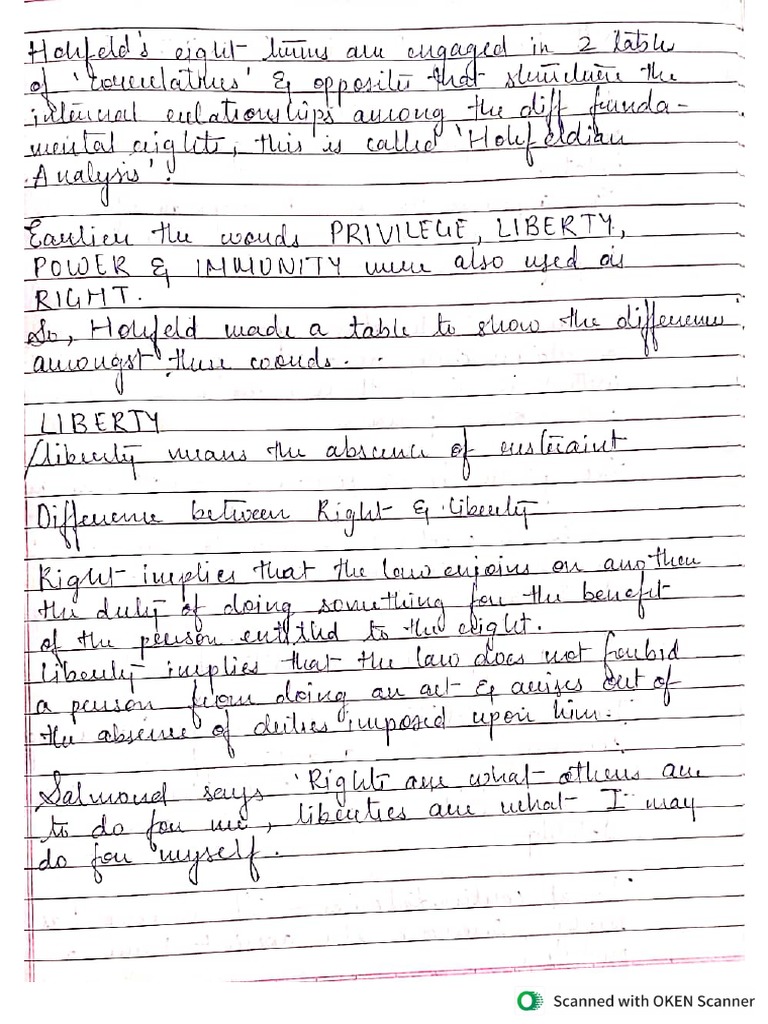 Hohfeld's eight terms are engaged in 2 table
of 'correlatives' & opposites that structure the
internal relationships among the diff funda-
mental rights, this is called 'Hohfeldian
Analysis'.
Earlier the words PRIVILEGE, LIBERTY,
POWER & IMMUNITY were also used as
RIGHT.
So, Hohfeld made a table to show the difference
amongst these words.
LIBERTY
Liberty means the absence of restraint
Difference between Right & Liberty
Right implies that the law enjoins on another
the duty of doing something for the benefit
of the person entitled to the right.
Liberty implies that the law does not forbid
a person from doing an act & arises out of
the absence of duties imposed upon him.
Salmond says 'Rights are what others are
to do for me, liberties are what I may
do for myself.
Scanned with OKEN Scanner